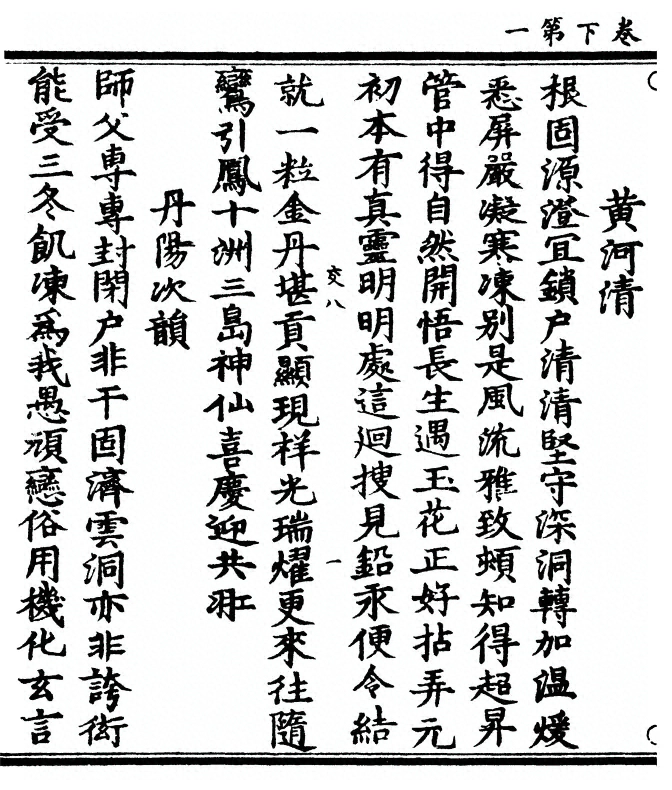 卷下第一
黄河清
根固源澄冝鎖户清清堅守深洞轉加温煖
悉屏嚴凝寒凍别是風流雅致頓知得超昇
管中得自然開悟長生遇玉花正好拈弄元
初本有真靈明明處這迴搜見鉛汞便令結
交八 一
就一粒金丹堪貢顯現样光瑞燿更來往隨
鸞引鳳十洲三島神仙喜慶迎共
丹陽次韻
師父専專封閉户非干固濟雲洞亦非誇衒
能受三冬飢凍爲我愚頑戀俗用機化玄言